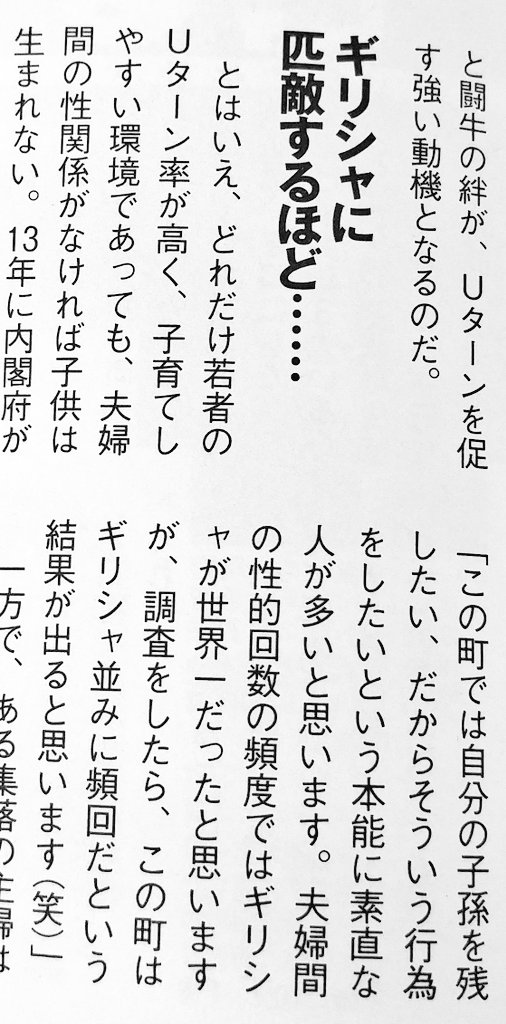 と闘牛の絆が、Uターンを促
す強い動機となるのだ。
ギリシャに
匹敵するほど……
とはいえ、どれだけ若者の
Uターン率が高く、子育てし
やすい環境であっても、夫婦
間の性関係がなければ子供は
生まれない。13年に内閣府が
「この町では自分の子孫を残
したい、だからそういう行為
をしたいという本能に素直な
人が多いと思います。夫婦間
の性的回数の頻度ではギリシ
ャが世界一だったと思います
が、調査をしたら、この町は
ギリシャ並みに頻回だという
結果が出ると思います(笑)」
一方で、ある集落の主婦は